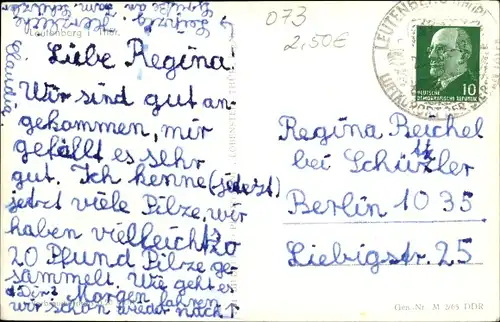 073
2,50€
Liebe Regina!
Wir sind gut an-
gekommen, mir
gefällt es sehr
gut. Ich kenne (jetzt)
jetzt viele Pilze, wir
haben vielleicht 20
20 Pfund Pilze ge-
sammelt. Wie geht es
Dir? Morgen fahren
wir schon wieder nach
Leipzig
Herzliche
Grüße an
Claudia
Leutenberg
LEUTENBERG (THÜR)
DEUTSCHE
DEMOKRATISCHE REPUBLIK
10
Regina Reichel
bei Schützler
tz
Berlin 1035
Liebigstr. 25
Gen.-Nr. M 2/65 DDR